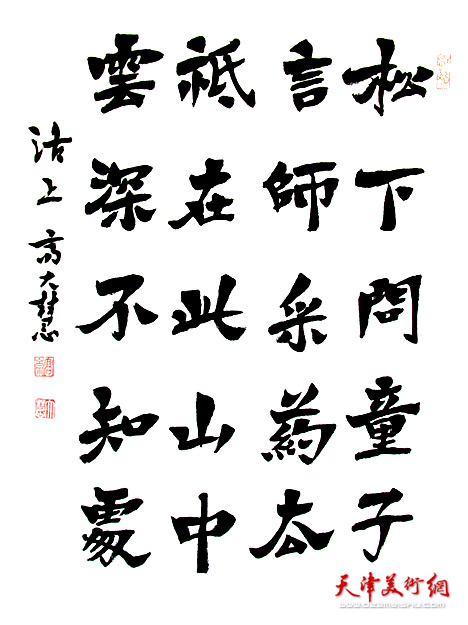 松下問童子
言師采葯厺
祇在此山中
雲深不知處
沽上 高大
天津美術網